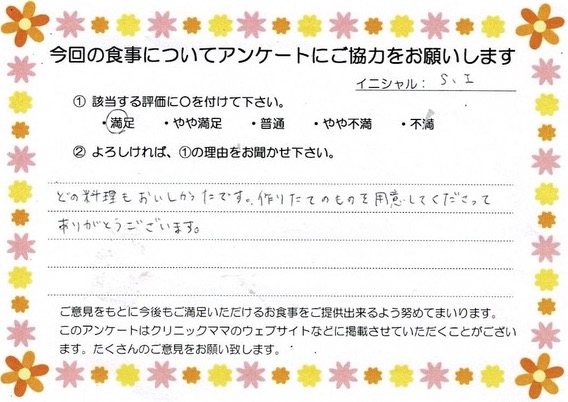 今回の食事についてアンケートにご協力をお願いします
イニシャル： S、I
① 該当する評価に〇を付けて下さい。
・満足 ・やや満足 ・普通 ・やや不満 ・不満
② よろしければ、①の理由をお聞かせ下さい。
どの料理もおいしかったです。作りたてのものを用意してくださって
ありがとうございます。
ご意見をもとに今後もご満足いただけるお食事をご提供出来るよう努めてまいります。
このアンケートはクリニックママのウェブサイトなどに掲載させていただくことがござい
ます。たくさんのご意見をお願い致します。